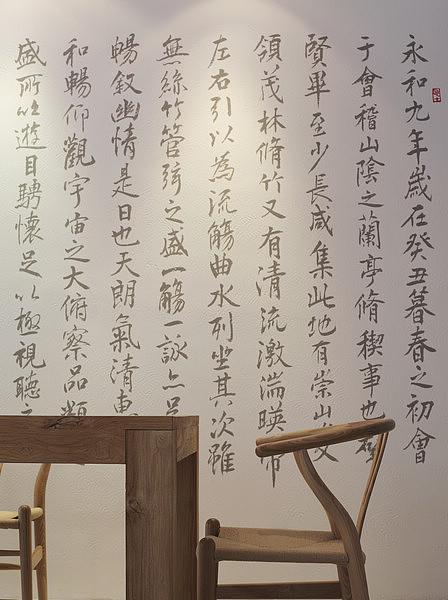 永和九年歲在癸丑暮春之初會
于會稽山陰之蘭亭脩稧事也
賢畢至少長咸集此地有崇山
領茂林脩竹又有清流激湍暎帶
左右引以為流觴曲水列坐其次雖
無絲竹管弦之盛一觴一詠亦足
暢叙幽情是日也天朗氣清惠
和暢仰觀宇宙之大俯察品類
盛所以遊目騁懷足以極視聽之